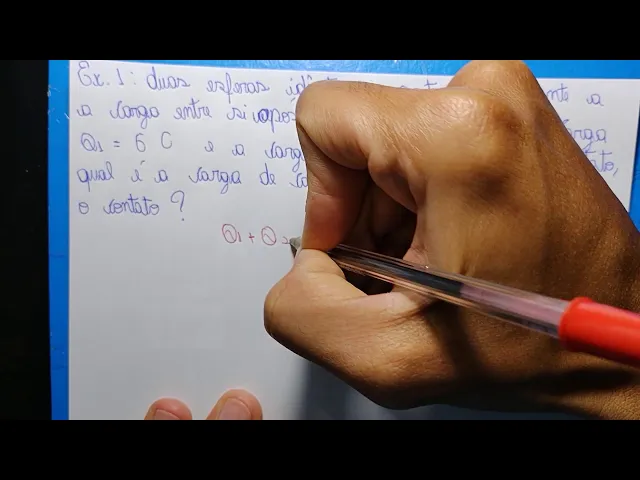 Ex. 1: duas esferas nte a
a carga entre si apos
Q1 = 6 C e a carg rga
qual é a carga de ca tato,
o contato?
Q1 + Q2